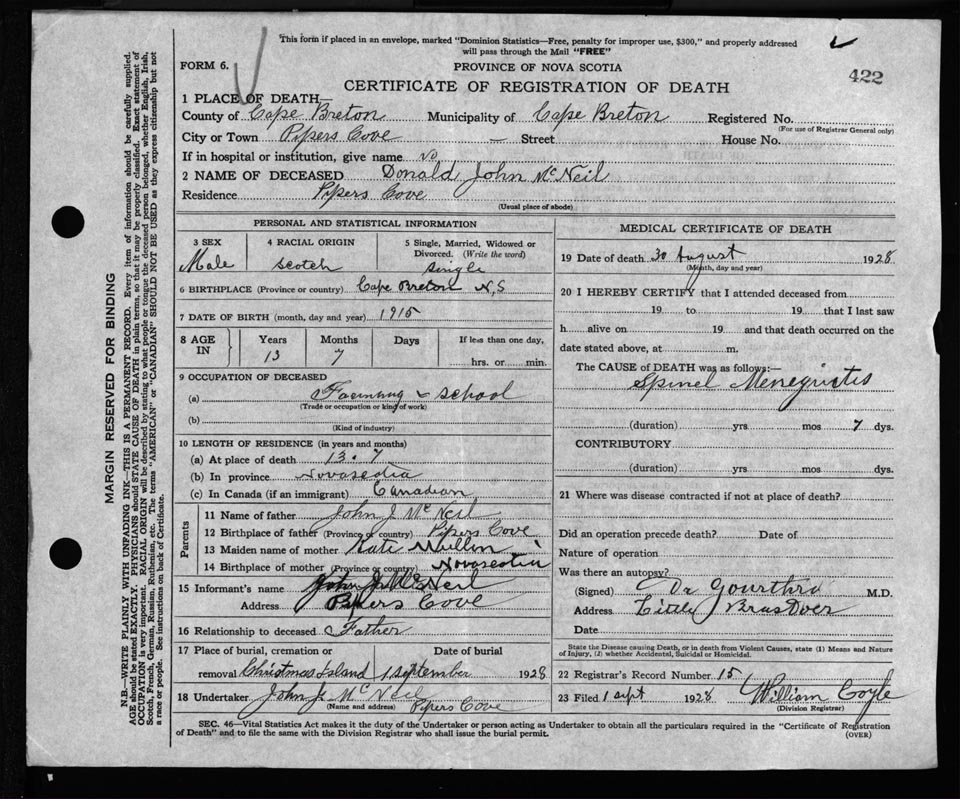 This form if placed in an envelope, marked "Dominion Statistics—Free, penalty for improper use, $300," and properly addressed
will pass through the Mail "FREE"
FORM 6.
PROVINCE OF NOVA SCOTIA
422
CERTIFICATE OF REGISTRATION OF DEATH
1 PLACE OF DEATH—
County of Cape Breton Municipality of Cape Breton Registered No.
(For use of Registrar General only)
City or Town Pipers Cove — Street House No.
If in hospital or institution, give name no
2 NAME OF DECEASED Donald John McNeil
Residence Pipers Cove
(Usual place of abode)
PERSONAL AND STATISTICAL INFORMATION
3 SEX 4 RACIAL ORIGIN 5 Single, Married, Widowed or
Divorced. (Write the word)
Male Scotch Single
6 BIRTHPLACE (Province or country) Cape Breton N,S
7 DATE OF BIRTH (month, day and year) 1915
8 AGE IN Years Months Days If less than one day,
13 7 hrs. or min.
9 OCCUPATION OF DECEASED
(a) Farming & school
(Trade or occupation or kind of work)
(b)
(Kind of industry)
10 LENGTH OF RESIDENCE (in years and months)
(a) At place of death 13.7
(b) In province Novascotia
(c) In Canada (if an immigrant) Canadian
Parents
11 Name of father John J McNeil
12 Birthplace of father (Province or country) Pipers Cove
13 Maiden name of mother Kate Mullen
14 Birthplace of mother (Province or country) Novascotia
15 Informant's name John J McNeil
Address Pipers Cove
16 Relationship to deceased Father
17 Place of burial, cremation or Date of burial
removal Christmas Island 1 September 1928
18 Undertaker John J McNeil
(Name and address) Pipers Cove
MEDICAL CERTIFICATE OF DEATH
19 Date of death 30 August 1928
(Month, day and year)
20 I HEREBY CERTIFY that I attended deceased from
19 to 19 that I last saw
h alive on 19 and that death occurred on the
date stated above, at m.
The CAUSE of DEATH was as follows:—
Spinel Menegintis
(duration) yrs mos 7 dys.
CONTRIBUTORY
(duration) yrs. mos. dys.
21 Where was disease contracted if not at place of death?
Did an operation precede death? Date of
Nature of operation
Was there an autopsy?
(Signed) Dr Gourthro M.D.
Address Little Brasdoer
Date
State the Disease causing Death, or in death from Violent Causes, state (1) Means and Nature
of Injury, (2) whether Accidental, Suicidal or Homicidal.
22 Registrar's Record Number 15
23 Filed 1 sept 1928 William Coyle
(Division Registrar)
SEC. 46—Vital Statistics Act makes it the duty of the Undertaker or person acting as Undertaker to obtain all the particulars required in the "Certificate of Registration
of Death" and to file the same with the Division Registrar who shall issue the burial permit.
(OVER)
MARGIN RESERVED FOR BINDING
N.B.—WRITE PLAINLY WITH UNFADING INK—THIS IS A PERMANENT RECORD. Every item of information should be carefully supplied.
AGE should be stated EXACTLY. PHYSICIANS should STATE CAUSE OF DEATH in plain terms, so that it may be properly classified. Exact statement of
OCCUPATION is very important. RACIAL ORIGIN will be described by stating to what people or tongue the deceased person belonged, whether English, Irish,
Scotch, French, German, Russian, Ruthenian, etc. The terms "AMERICAN" or "CANADIAN" SHOULD NOT BE USED as they express citizenship but not
a race or people. See instructions on back of Certificate.